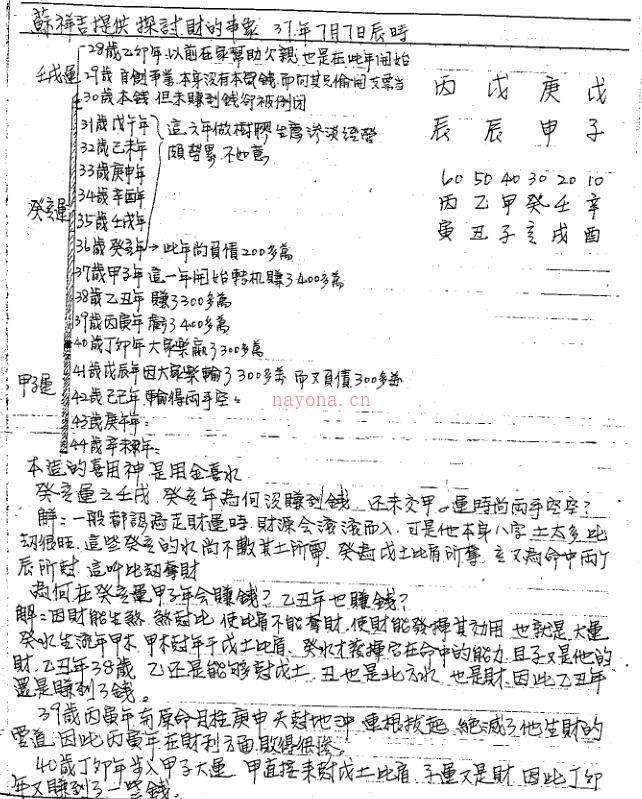 蘇祥吉提供 探討財的事象 37年7月7日辰時
28歲乙卯年:以前在家幫助父親,也是在此年開始
壬戌運 29歲 自創事業,本身沒有本錢,而向其兄偷開支票当
30歲 本錢 但未賺到錢卻被倒闭
丙 戊 庚 戊
辰 辰 申 子
31歲戊午年 這六年做樹膠生意慘淡經營
32歲己未年 頗勞累 不如意
33歲庚申年
34歲辛酉年
癸亥運 35歲壬戌年
60 50 40 30 20 10
丙 乙 甲 癸 壬 辛
寅 丑 子 亥 戌 酉
36歲癸亥年→此年尚負債200多萬
37歲甲子年 這一年開始轉机賺了400多萬
38歲乙丑年 賺了300多萬
39歲丙寅年 虧了400多萬
40歲丁卯年大家樂贏了300多萬
41歲戊辰年因大家樂輸了300多萬 而又負債300多萬
甲子運 42歲己巳年 輸得兩手空。
43歲庚午年:
44歲辛未年:
nayona.cn
本造的喜用神是用金喜水
癸亥運之壬戌.癸亥年為何沒賺到錢 还未交甲.運時尚兩手空空?
解:一般都認為走財運時.財源会滾滾而入.可是他本身八字土太多比
劫很旺.這些癸亥的水尚不敷其土所需.癸為戊土比肩所奪 亥又為命中兩個
辰所尅.這叫比刼奪財
為何在癸亥運甲子年会賺錢?乙丑年也賺錢?
解:因財能生煞.煞尅比.使比肩不能奪財.使財能發揮其効用 也就是大運
癸水生流年甲木.甲木尅年干戊土比肩.癸水才發揮它在命中的能力.且子又是他的
財.乙丑年38歲 乙还是能够尅戊土.丑也是北方水 也是財.因此乙丑年
還是賺到了錢。
39歲丙寅年 原命月柱庚申天尅地沖 連根拔起 絕滅了他生財的
管道.因此丙寅年在財利方面.敗得很慘。
40歲丁卯年步入甲子大運 甲直接來尅戊土比肩.子運又是財.因此丁卯
年又賺到了一些錢.